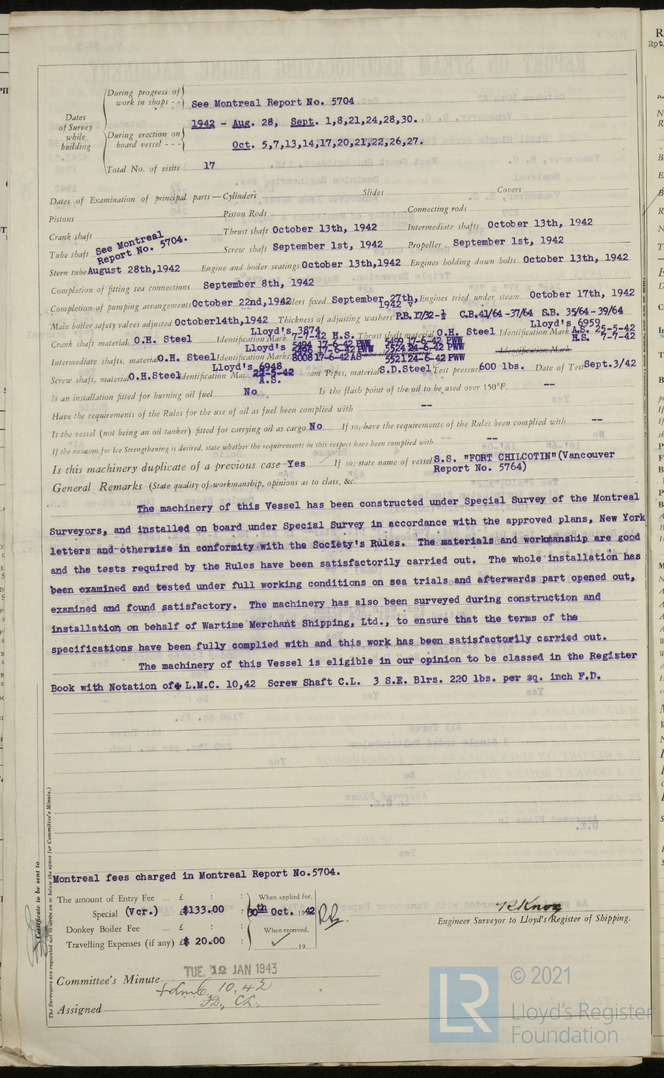 During progress of work in shops - - See Montreal Report No. 5704
Dates of Survey while building
1942 - Aug. 28, Sept. 1,8,21,24,28,30.
During erection on board vessel - - - Oct. 5,7,13,14,17,20,21,22,26,27.
Total No. of visits 17
Dates of Examination of principal parts—Cylinders Slides Covers
Pistons Piston Rods Connecting rods
Crank shaft See Montreal Report No. 5704. Thrust shaft October 13th, 1942 Intermediate shafts October 13th, 1942
Tube shaft Screw shaft September 1st, 1942 Propeller September 1st, 1942
Stern tube August 28th,1942 Engine and boiler seatings October 13th,1942 Engines holding down bolts October 13th, 1942
Completion of fitting sea connections September 8th, 1942
Completion of pumping arrangements October 22nd,1942 fixed September 27th, 1942 Engines tried under steam October 17th, 1942
Main boiler safety valves adjusted October 14th,1942 Thickness of adjusting washers P.B. 17/32-½ C.B.41/64-37/64 S.B. 35/64-39/64
Crank shaft material O.H. Steel Identification Mark Lloyd's 3874 7-7-42 H.S. Thrust shaft material O.H. Steel Identification Mark Lloyd's 6959 A.S. 25-5-42 H.S. 7-7-42
Intermediate shafts, material O.H. Steel Identification Marks Lloyd's 17-6-42 24-6-42 PWW
Screw shaft, material O.H.Steel Identification Lloyd's 6948 22-5-42 A.S. Pipes, material S.D.Steel Test pressure 600 lbs. Date of Test Sept.3/42
Is an installation fitted for burning oil fuel No Is the flash point of the oil to be used over 150°F. --
Have the requirements of the Rules for the use of oil as fuel been complied with --
Is the vessel (not being an oil tanker) fitted for carrying oil as cargo No If so, have the requirements of the Rules been complied with --
If the notation for Ice Strengthening is desired, state whether the requirements in this respect have been complied with --
Is this machinery duplicate of a previous case Yes If so, state name of vessel S.S. "FORT CHILCOTIN"(Vancouver Report No. 5764)
General Remarks (State quality of workmanship, opinions as to class, &c.
The machinery of this Vessel has been constructed under Special Survey of the Montreal
Surveyors, and installed on board under Special Survey in accordance with the approved plans, New York
letters and otherwise in conformity with the Society's Rules. The materials and workmanship are good
and the tests required by the Rules have been satisfactorily carried out. The whole installation has
been examined and tested under full working conditions on sea trials and afterwards part opened out,
examined and found satisfactory. The machinery has also been surveyed during construction and
installation on behalf of Wartime Merchant Shipping, Ltd., to ensure that the terms of the
specifications have been fully complied with and this work has been satisfactorily carried out.
The machinery of this Vessel is eligible in our opinion to be classed in the Register
Book with Notation of ✠ L.M.C. 10,42 Screw Shaft C.L. 3 S.E. Blrs. 220 lbs. per sq. inch F.D.
Certificate to be sent to
The Surveyors are requested not to write on or below the space for Committee's Minute.)
Montreal fees charged in Montreal Report No.5704.
The amount of Entry Fee ... £ : : When applied for,
Special (Vcr.) $133.00 30th Oct. 1942
Donkey Boiler Fee ... £ : : When received,
Travelling Expenses (if any) £ $ 20.00 19
Engineer Surveyor to Lloyd's Register of Shipping.
Committee's Minute TUE. 12 JAN 1943
Assigned + Lmc 10,42
FD, CL.
LR © 2021
Lloyd's Register
Foundation